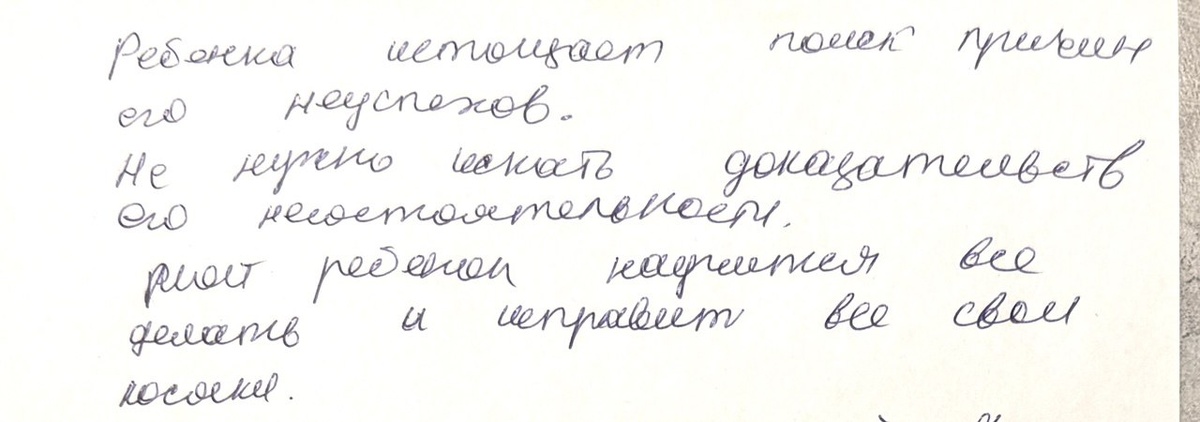 Ребенка истощает поиск причин
его неуспехов.
Не нужно искать доказательств
его несостоятельности.
ребенок научится все
делать и исправит все свои
косяки.